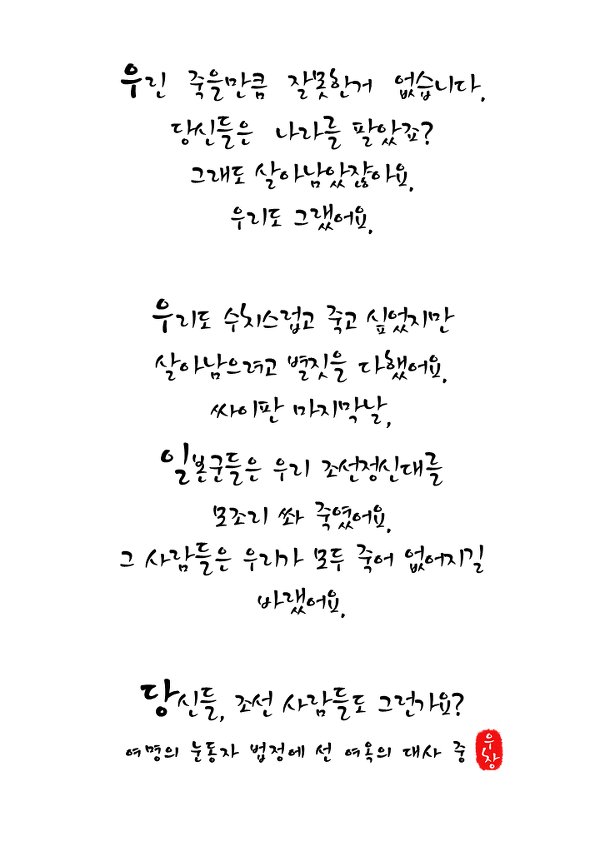 우린 죽을만큼 잘못한거 없습니다.
당신들은 나라를 팔았죠?
그래도 살아남았잖아요.
우리도 그랬어요.
우리도 수치스럽고 죽고 싶었지만
살아남으려고 별짓을 다했어요.
싸이판 마지막날,
일본군들은 우리 조선정신대를
모조리 쏴 죽였어요.
그 사람들은 우리가 모두 죽어 없어지길
바랬어요.
당신들, 조선 사람들도 그런가요?
여명의 눈동자 법정에 선 여옥의 대사 중
우창